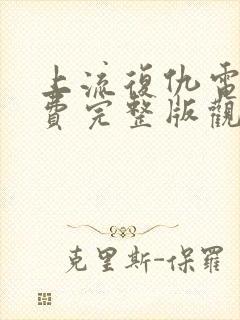 上流復仇電
費完整版觀
克里斯-保羅